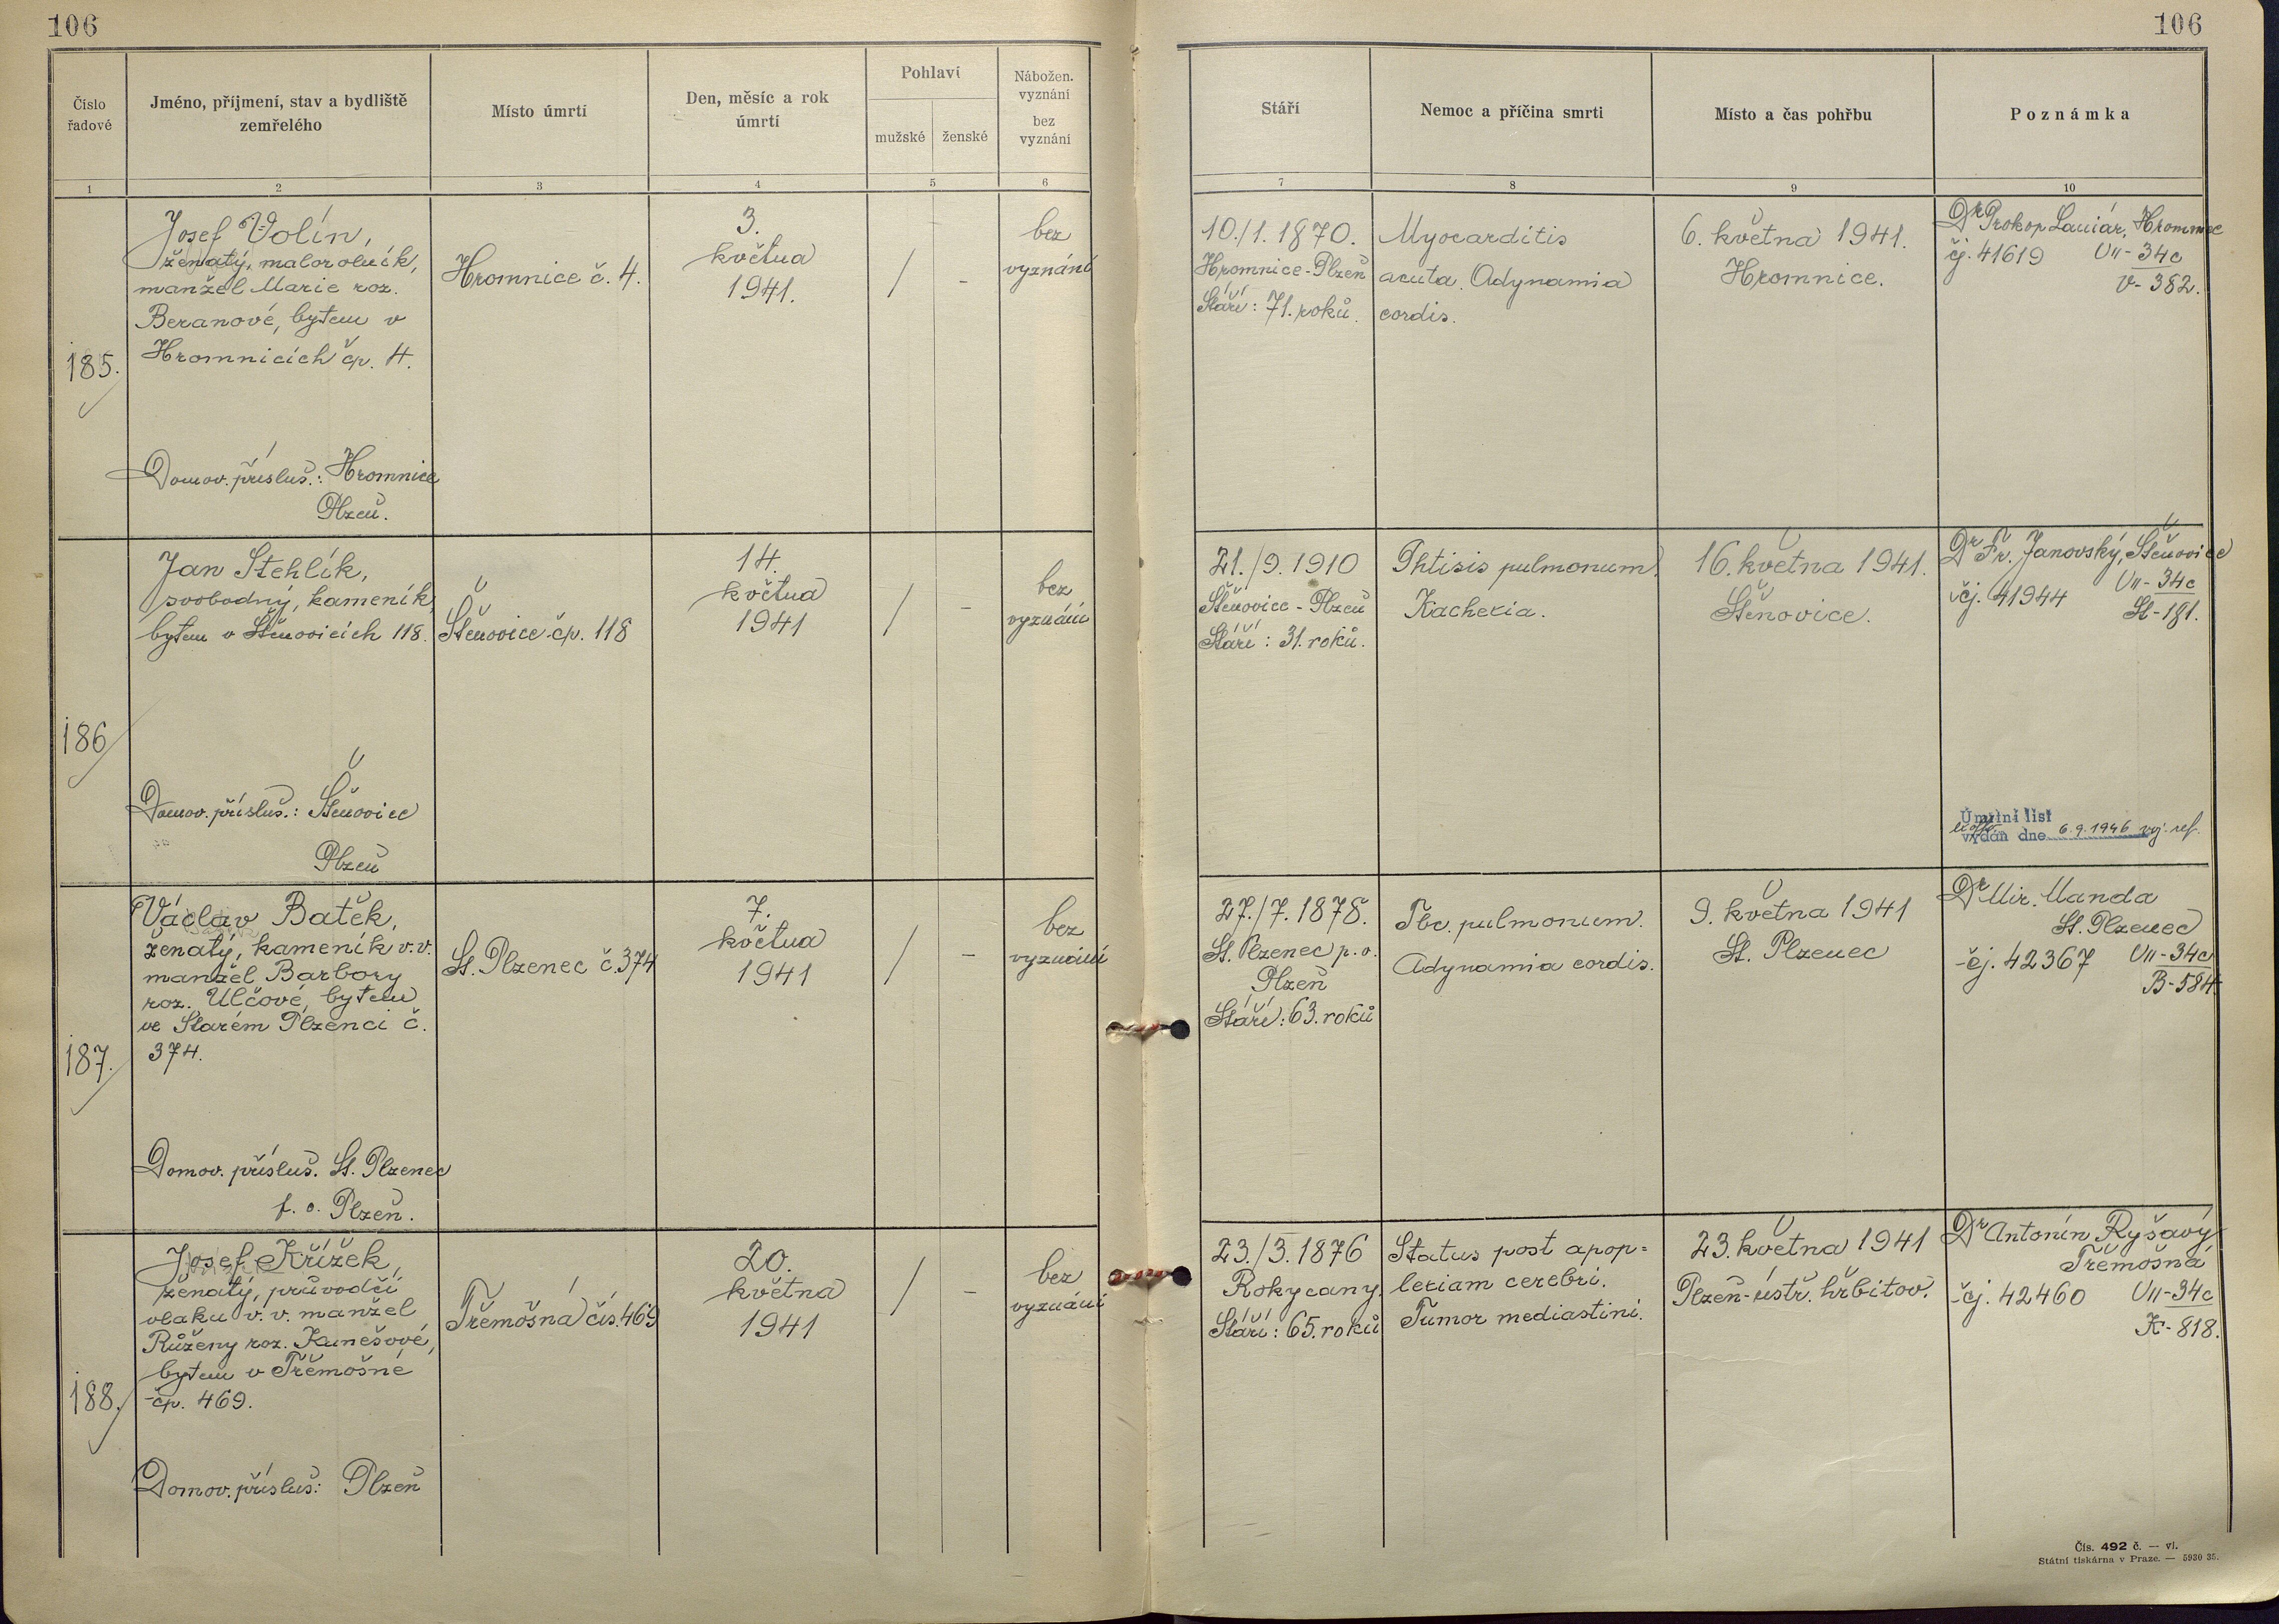 106
106
Číslo
řadové
Jméno, příjmení, stav a bydliště
zemřelého
Místo úmrtí
Den, měsíc a rok
úmrtí
Pohlaví
mužské
ženské
Nábožen.
vyznání
bez
vyznání
Stáří
Nemoc a příčina smrti
Místo a čas pohřbu
Poznámka
1
2
3
4
5
6
7
8
9
10
185.
Josef Volín,
ženatý, malorolník,
manžel Marie roz.
Beranové, bytem v
Hromnicích čp. 4.
Domov. přísluš.: Hromnice
Plzeň.
Hromnice č. 4.
3.
května
1941.
/
-
bez
vyznání
10./1. 1870.
Hromnice-Plzeň
Stáří: 71. roků.
Myocarditis
acuta. Adynamia
cordis.
6. května 1941.
Hromnice.
Dr Prokop Hromnice
čj. 41619 VII-34c
V-382.
186
Jan Stehlík,
svobodný, kameník,
bytem v Štěnovicích 118.
Domov. přísluš.: Štěnovice
Plzeň
Štěnovice čp. 118
14.
května
1941
/
-
bez
vyznání
21./9. 1910
Štěnovice - Plzeň
Stáří: 31. roků.
Phtisis pulmonum.
Kachexia.
16. května 1941.
Štěnovice.
Dr Fr. Janovský, Štěnovice
čj. 41944 VII-34c
St-181.
Úmrtní list
vydán dne 6.9.1946 voj. ref.
187.
Václav Baťěk,
ženatý, kameník v.v.
manžel Barbory
roz. Ulčové, bytem
ve Starém Plzenci č.
374.
Domov. přísluš. St. Plzenec
p. o. Plzeň.
St. Plzenec č. 374
7.
května
1941
/
-
bez
vyznání
27./7. 1878.
St. Plzenec p. o.
Plzeň
Stáří: 63. roků
Tbc. pulmonum.
Adynamia cordis.
9. května 1941
St. Plzenec
Dr Mir. Manda
St. Plzenec
čj. 42367 VII-34c
B-584.
188.
Josef Křížek,
ženatý, průvodčí
vlaku v. v. manžel
Růženy roz. Kunešové,
bytem v Třemošné
čp. 469.
Domov. přísluš: Plzeň
Třemošná čís. 469
20.
května
1941
/
-
bez
vyznání
23./3. 1876
Rokycany.
Stáří: 65. roků
Status post apop=
lexiam cerebri.
Tumor mediastini.
23. května 1941
Plzeň-ústř. hřbitov.
Dr Antonín Ryšavý
Třemošná
čj. 42460 VII-34c
K-818.
Čís. 492 č. — vl.
Státní tiskárna v Praze. — 5930 35.